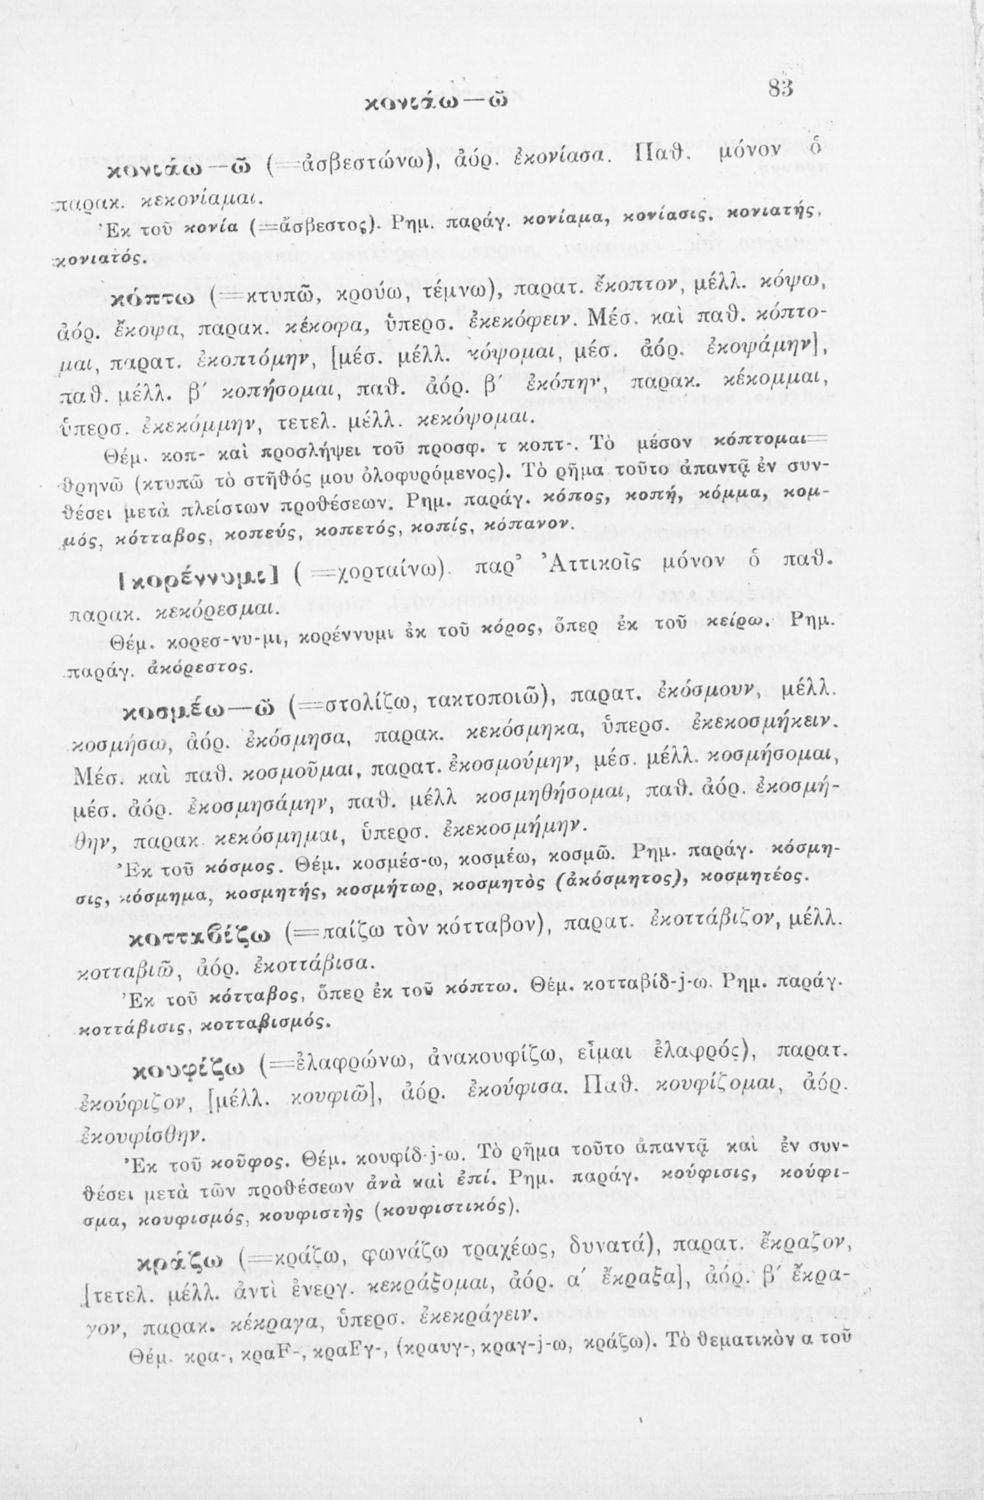 κονιάω—ῶ
83
κονιάω—ῶ (=ἀσβεστώνω), ἀόρ. ἐκονίασα. Παθ. μόνον ὁ
παρακ. κεκονίαμαι.
Ἐκ τοῦ κονία (=ἄσβεστος). Ρημ. παράγ. κονίαμα, κονίασις, κονιατής,
κονιατός.
κόπτω (=κτυπῶ, κρούω, τέμνω), παρατ. ἔκοπτον, μέλλ. κόψω,
ἀόρ. ἔκοψα, παρακ. κέκοφα, ὑπερσ. ἐκεκόφειν. Μέσ. καὶ παθ. κόπτο-
μαι, παρατ. ἐκοπτόμην, [μέσ. μέλλ. κόψομαι, μέσ. ἀόρ. ἐκοψάμην],
παθ. μέλλ. β΄ κοπήσομαι, παθ. ἀόρ. β΄ ἐκόπην, παρακ. κέκομμαι,
ὑπερσ. ἐκεκόμμην, τετελ. μέλλ. κεκόψομαι.
Θέμ. κοπ- καὶ προσλήψει τοῦ προσφ. τ κοπτ-. Τὸ μέσον κόπτομαι=
θρηνῶ (κτυπῶ τὸ στῆθός μου ὀλοφυρόμενος). Τὸ ρῆμα τοῦτο ἀπαντᾷ ἐν συν-
θέσει μετὰ πλείστων προθέσεων. Ρημ. παράγ. κόπος, κοπή, κόμμα, κομ-
μός, κότταβος, κοπεύς, κοπετός, κοπίς, κόπανον.
[κορέννυμι] (=χορταίνω). παρ᾽ Ἀττικοῖς μόνον ὁ παθ.
παρακ. κεκόρεσμαι.
Θέμ. κορεσ-νυ-μι, κορέννυμι ἐκ τοῦ κόρος, ὅπερ ἐκ τοῦ κείρω. Ρημ.
παράγ. ἀκόρεστος.
κοσμέω—ῶ (=στολίζω, τακτοποιῶ), παρατ. ἐκόσμουν, μέλλ.
κοσμήσω, ἀόρ. ἐκόσμησα, παρακ. κεκόσμηκα, ὑπερσ. ἐκεκοσμήκειν.
Μέσ. καὶ παθ. κοσμοῦμαι, παρατ. ἐκοσμούμην, μέσ. μέλλ. κοσμήσομαι,
μέσ. ἀόρ. ἐκοσμησάμην, παθ. μέλλ κοσμηθήσομαι, παθ. ἀόρ. ἐκοσμή-
θην, παρακ. κεκόσμημαι, ὑπερσ. ἐκεκοσμήμην.
Ἐκ τοῦ κόσμος. Θέμ. κοσμέσ-ω, κοσμέω, κοσμῶ. Ρημ. παράγ. κόσμη-
σις, κόσμημα, κοσμητής, κοσμήτωρ, κοσμητὸς (ἀκόσμητος), κοσμητέος.
κοτταβίζω (=παίζω τὸν κότταβον), παρατ. ἐκοττάβιζον, μέλλ.
κοτταβιῶ, ἀόρ. ἐκοττάβισα.
Ἐκ τοῦ κότταβος, ὅπερ ἐκ τοῦ κόπτω. Θέμ. κοτταβίδ-j-ω. Ρημ. παράγ.
κοττάβισις, κοτταβισμός.
κουφίζω (=ἐλαφρώνω, ἀνακουφίζω, εἶμαι ἐλαφρός), παρατ.
ἐκούφιζον, [μέλλ. κουφιῶ], ἀόρ. ἐκούφισα. Παθ. κουφίζομαι, ἀόρ.
ἐκουφίσθην.
Ἐκ τοῦ κοῦφος. Θέμ. κουφίδ-j-ω. Τὸ ρῆμα τοῦτο ἀπαντᾷ καὶ ἐν συν-
θέσει μετὰ τῶν προθέσεων ἀνὰ καὶ ἐπί. Ρημ. παράγ. κούφισις, κούφι-
σμα, κουφισμός, κουφιστὴς (κουφιστικός).
κράζω (=κράζω, φωνάζω τραχέως, δυνατά), παρατ. ἔκραζον,
[τετελ. μέλλ. ἀντὶ ἐνεργ. κεκράξομαι, ἀόρ. α΄ ἔκραξα], ἀόρ. β΄ ἔκρα-
γον, παρακ. κέκραγα, ὑπερσ. ἐκεκράγειν.
Θέμ. κρα-, κραF-, κραFγ-, (κραυγ-, κραγ-j-ω, κράζω). Τὸ θεματικὸν α τοῦ